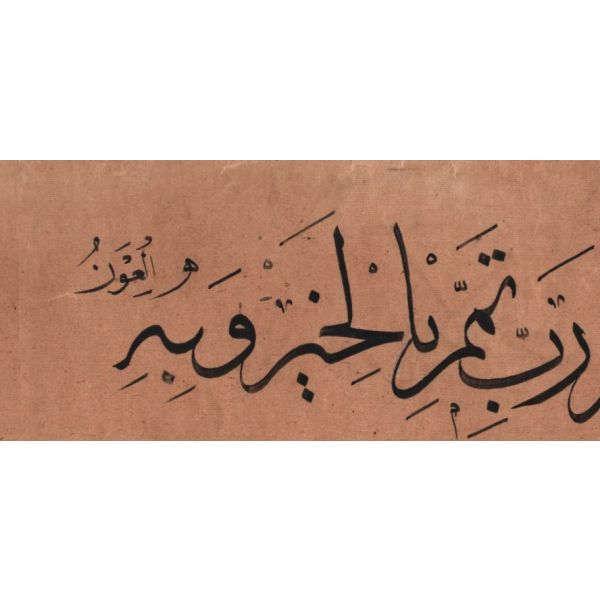 رَبِّ تَمِّمْ بِالْخَيْرِ وَبِهِ الْعَوْنُ